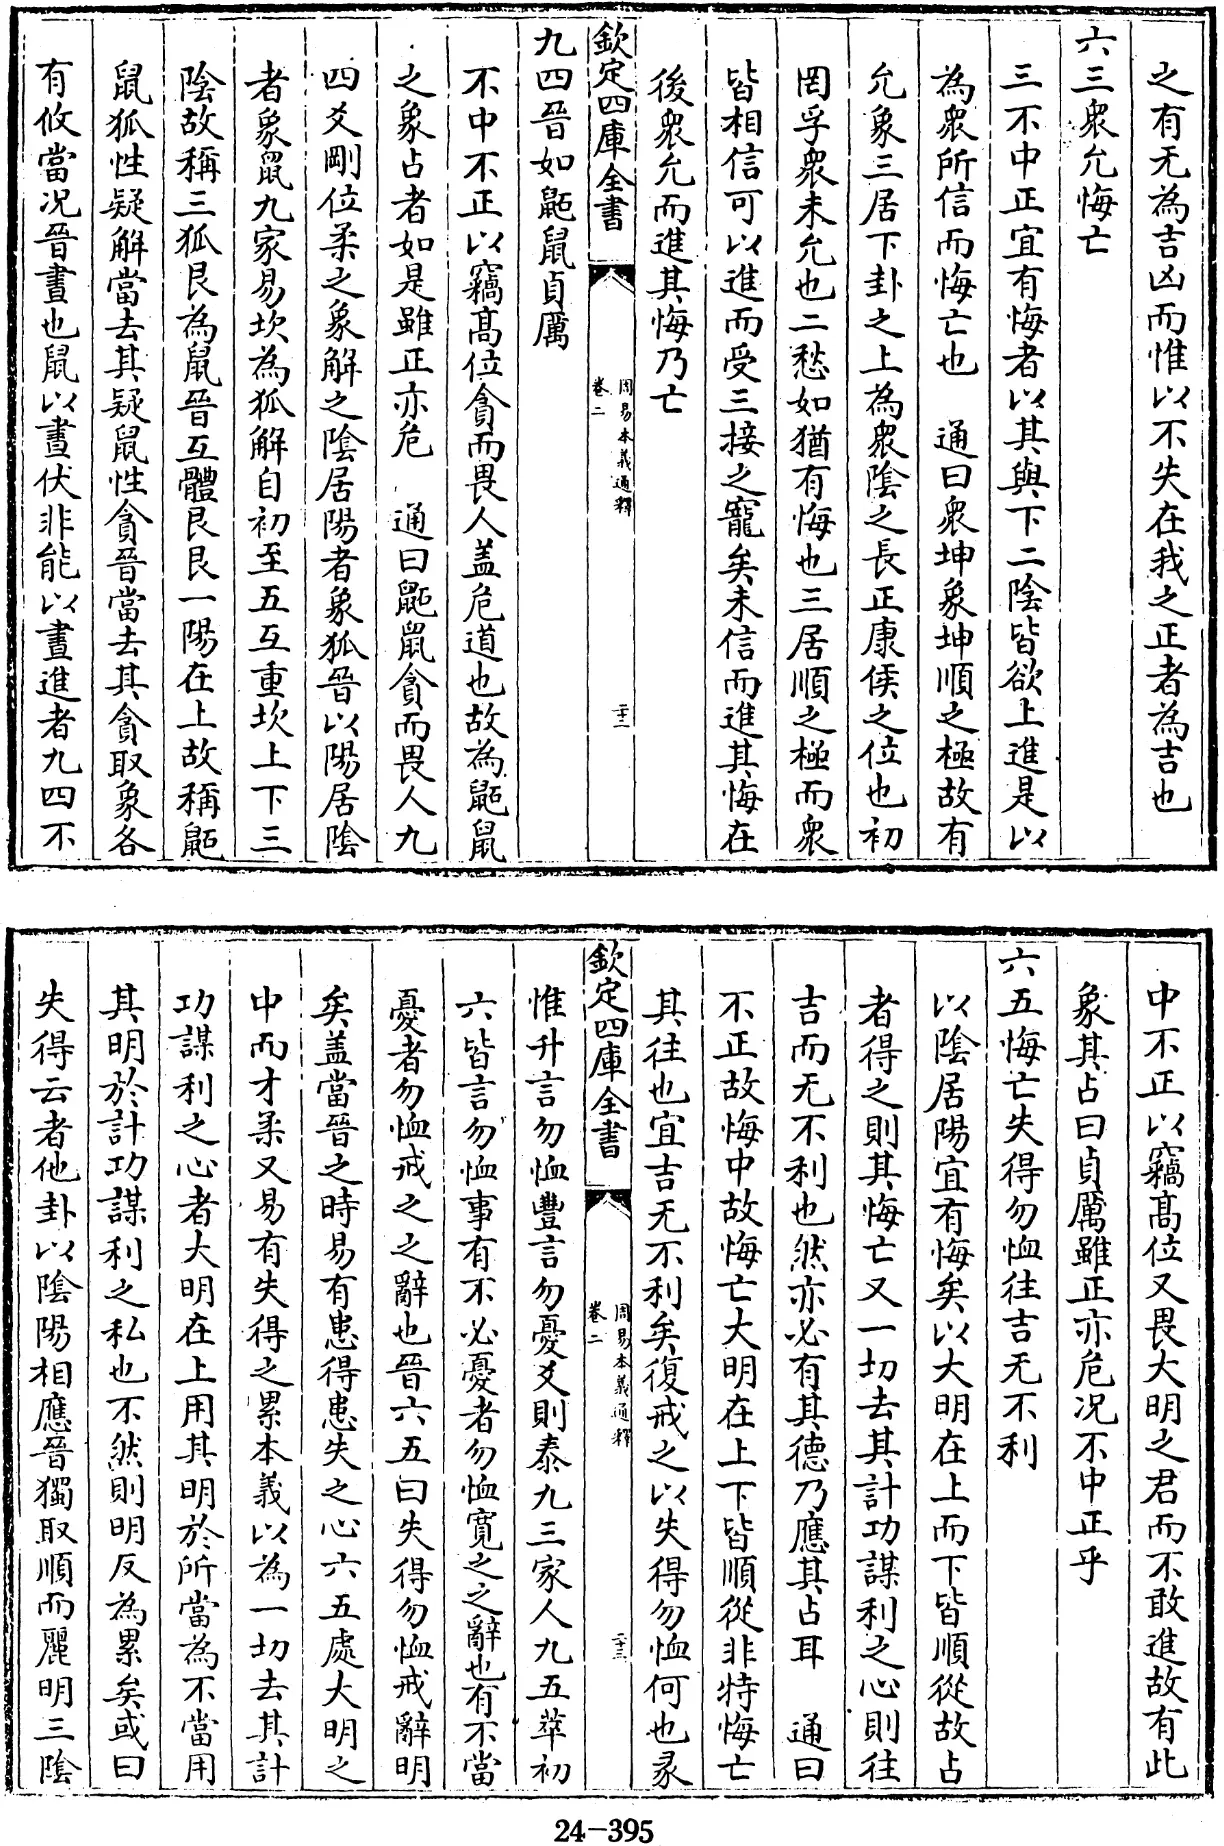 之有无為吉凶而惟以不失在我之正者為吉也
六三衆允悔亡
三不中正宜有悔者以其與下二陰皆欲上進是以
為衆所信而悔亡也　通曰衆坤象坤順之極故有
允象三居下卦之上為衆陰之長正康侯之位也初
罔孚衆未允也二愁如猶有悔也三居順之極而衆
皆相信可以進而受三接之寵矣未信而進其悔在
後衆允而進其悔乃亡
欽定四庫全書　周易本義通釋　卷二　二十二
九四晉如鼫鼠貞厲
不中不正以竊高位貪而畏人盖危道也故為鼫鼠
之象占者如是雖正亦危　通曰鼫鼠貪而畏人九
四爻剛位柔之象解之陰居陽者象狐晉以陽居陰
者象鼠九家易坎為狐解自初至五互重坎上下三
陰故稱三狐艮為鼠晉互體艮艮一陽在上故稱鼫
鼠狐性疑解當去其疑鼠性貪晉當去其貪取象各
有攸當况晉晝也鼠以晝伏非能以晝進者九四不
中不正以竊髙位又畏大明之君而不敢進故有此
象其占曰貞厲雖正亦危况不中正乎
六五悔亡失得勿恤往吉无不利
以陰居陽宜有悔矣以大明在上而下皆順從故占
者得之則其悔亡又一切去其計功謀利之心則往
吉而无不利也然亦必有其德乃應其占耳　通曰
不正故悔中故悔亡大明在上下皆順從非特悔亡
其往也宜吉无不利矣復戒之以失得勿恤何也彖
欽定四庫全書　周易本義通釋　卷二　二十三
惟升言勿恤豐言勿憂爻則泰九三家人九五萃初
六皆言勿恤事有不必憂者勿恤寛之之辭也有不當
憂者勿恤戒之之辭也晉六五曰失得勿恤戒辭明
矣盖當晉之時易有患得患失之心六五處大明之
中而才柔又易有失得之累本義以為一切去其計
功謀利之心者大明在上用其明於所當為不當用
其明於計功謀利之私也不然則明反為累矣或曰
失得云者他卦以陰陽相應晉獨取順而麗明三陰
24-395